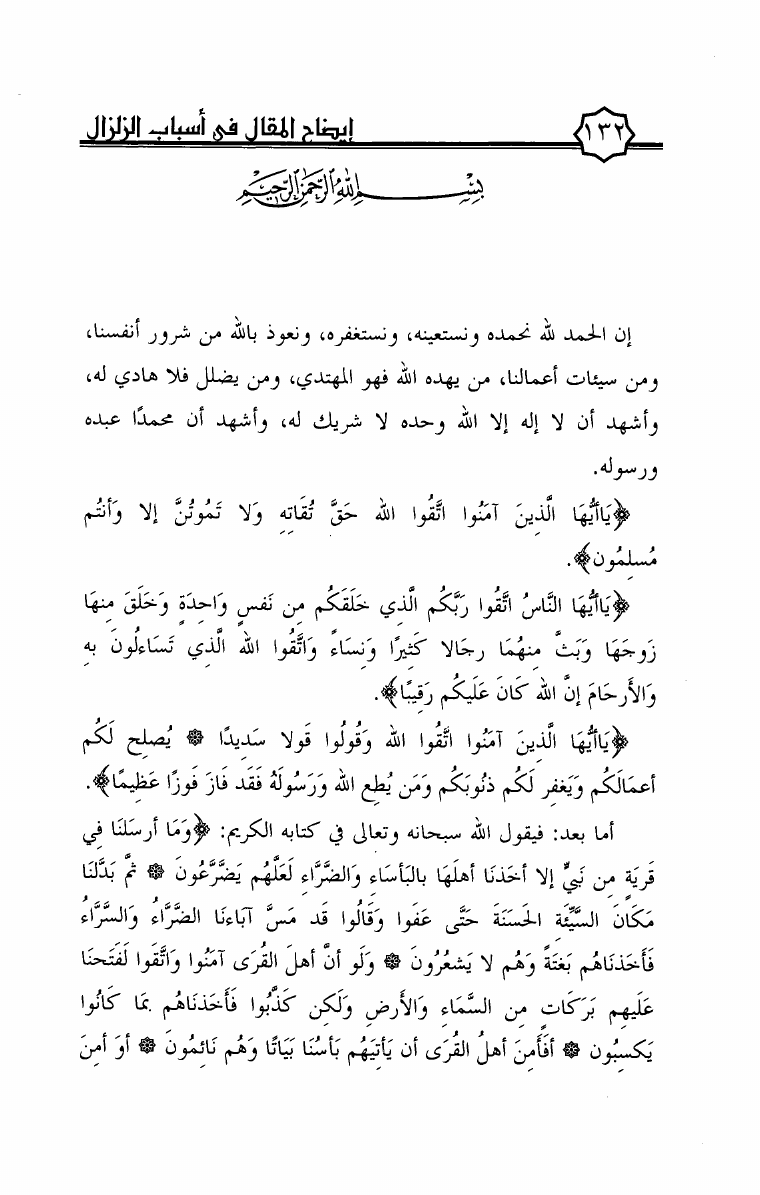 إيضاح المقال في أسباب الزلزال
١٣٢
بسم الله الرحمن الرحيم
إن الحمد لله نحمده ونستعينه، ونستغفره، ونعوذ بالله من شرور أنفسنا،
ومن سيئات أعمالنا، من يهده الله فهو المهتدي، ومن يضلل فلا هادي له،
وأشهد أن لا إله إلا الله وحده لا شريك له، وأشهد أن محمدًا عبده
ورسوله.
﴿يَاأَيُّهَا الَّذِينَ آمَنُوا اتَّقُوا الله حَقَّ تُقَاتِهِ وَلا تَمُوتُنَّ إلا وَأنتُم
مُسلِمُون﴾.
﴿يَاأَيُّهَا النَّاسُ اتَّقُوا رَبَّكُم الَّذِي خَلَقَكُم مِن نَفسٍ وَاحِدَةٍ وَخَلَقَ مِنهَا
زَوجَهَا وَبَثَّ مِنهُمَا رِجَالا كَثِيرًا وَنِسَاءً وَاتَّقُوا الله الَّذِي تَسَاءلُونَ بِهِ
وَالأرحَامَ إِنَّ الله كَانَ عَلَيكُم رَقِيبًا﴾.
﴿يَاأَيُّهَا الَّذِينَ آمَنُوا اتَّقُوا الله وَقُولُوا قَولا سَدِيدًا * يُصلِح لَكُم
أعمَالَكُم وَيَغفِر لَكُم ذنُوبَكُم وَمَن يُطِع الله وَرَسُولَهُ فَقَد فَازَ فَوزًا عَظِيمًا﴾.
أما بعد: فيقول الله سبحانه وتعالى في كتابه الكريم: ﴿وَمَا أرسَلنَا فِي
قَريَةٍ مِن نَبِيٍّ إلا أخَذنَا أهلَهَا بالبَأسَاءِ وَالضَّرَّاءِ لَعَلَّهُم يَضَّرَّعُونَ * ثُمَّ بَدَّلنَا
مَكَانَ السَّيِّئَةِ الحَسَنَةَ حَتَّى عَفَوا وَقَالُوا قَد مَسَّ آبَاءنَا الضَّرَّاءُ وَالسَّرَّاءُ
فَأخَذنَاهُم بَغتَةً وَهُم لا يَشعُرُونَ * وَلَو أنَّ أهلَ القُرَى آمَنُوا وَاتَّقَوا لَفَتَحنَا
عَلَيهِم بَرَكَاتٍ مِن السَّمَاءِ وَالأرضِ وَلَكِن كَذَّبُوا فَأخَذنَاهُم بمَا كَانُوا
يَكسِبُون * أفَأمِنَ أهلُ القُرَى أن يَأتِيَهُم بَأسُنَا بَيَاتًا وَهُم نَائِمُونَ * أوَ أمِنَ